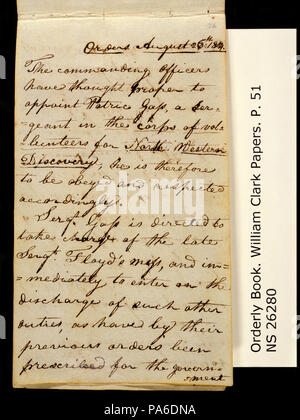 Orders August 26th 1804.
The commanding officers
have thought proper to
appoint Patric Gass, a ser-
=geant in the corps of vol-
=lunteers for North Western
Discovery; he is therefore
to be obeyed and respected
accordingly.
Sergt. Gass is directed to
take charge of the late
Sergt. Floyd's mess, and im-
=mediately to enter on the
discharge of such other
duties, as have by their
previous orders been
prescribed for the govern-
=ment
Orderly Book. William Clark Papers. P. 51
NS 26280
alamy
alamy
Image ID: PA6DNA
www.alamy.com